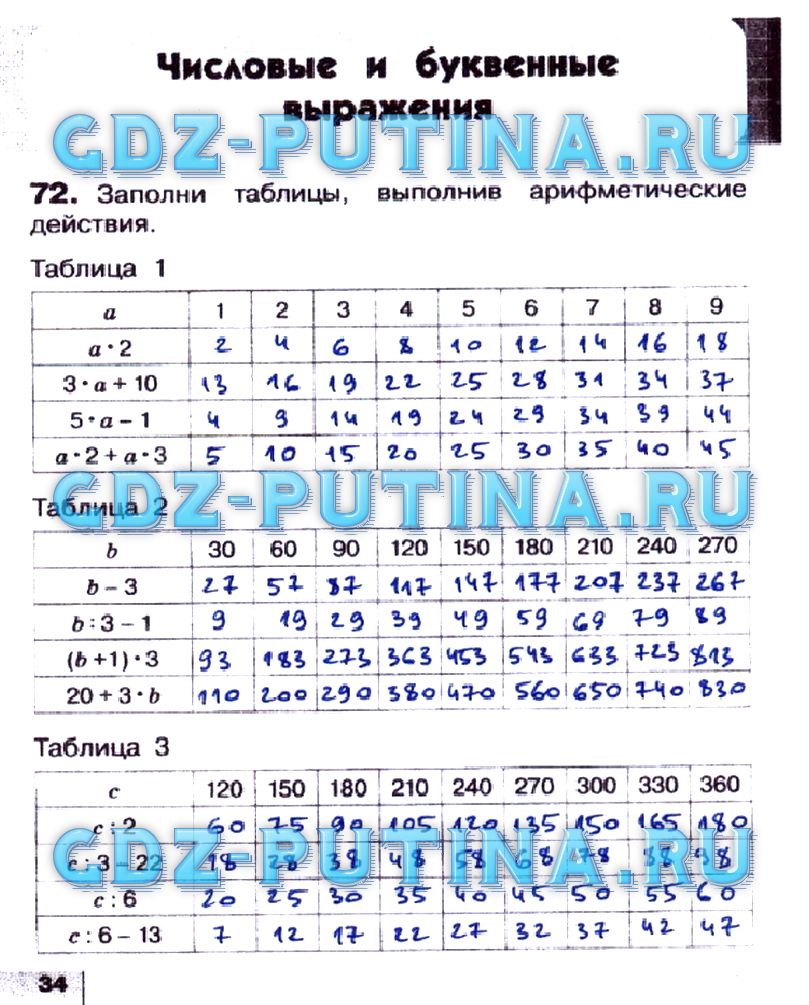 Числовые и буквенные
выражения
GDZ-PUTINA.RU
72. Заполни таблицы, выполнив арифметические
действия.
Таблица 1
a 1 2 3 4 5 6 7 8 9
a · 2 2 4 6 8 10 12 14 16 18
3 · a + 10 13 16 19 22 25 28 31 34 37
5 · a – 1 4 9 14 19 24 29 34 39 44
a · 2 + a · 3 5 10 15 20 25 30 35 40 45
GDZ-PUTINA.RU
Таблица 2
b 30 60 90 120 150 180 210 240 270
b – 3 27 57 87 117 147 177 207 237 267
b : 3 – 1 9 19 29 39 49 59 69 79 89
(b + 1) · 3 93 183 273 363 453 543 633 723 813
20 + 3 · b 110 200 290 380 470 560 650 740 830
Таблица 3
c 120 150 180 210 240 270 300 330 360
c : 2 60 75 90 105 120 135 150 165 180
GDZ-PUTINA.RU
c : 3 – 22 18 28 38 48 58 68 78 88 98
c : 6 20 25 30 35 40 45 50 55 60
c : 6 – 13 7 12 17 22 27 32 37 42 47
34